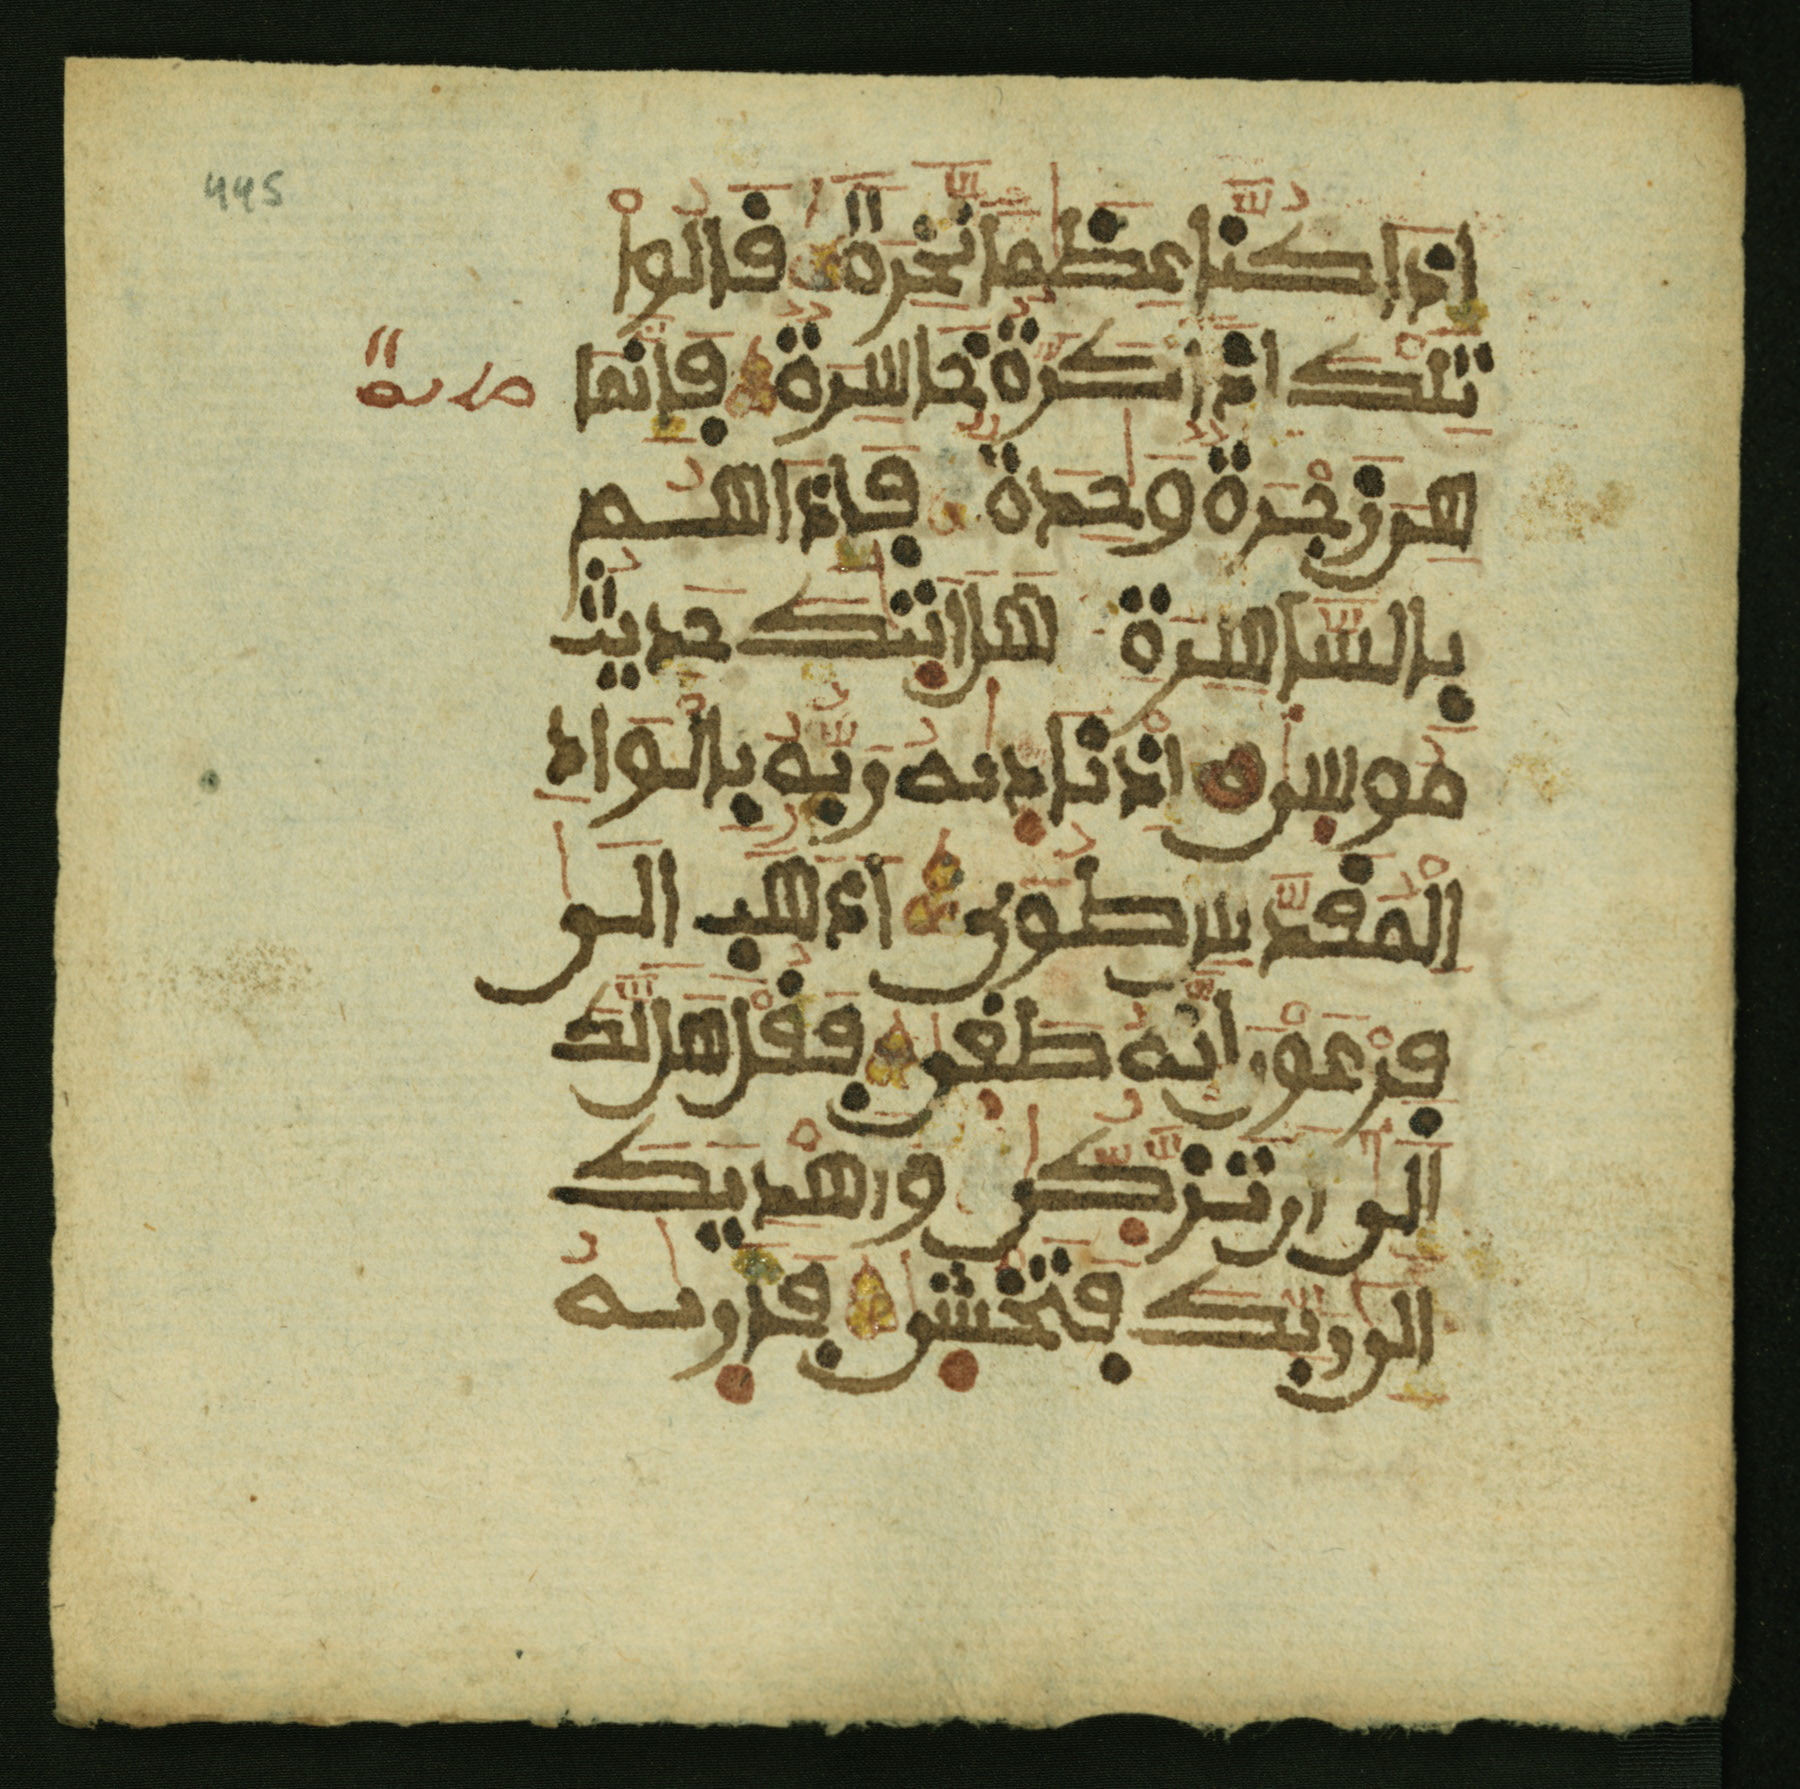 اذا كنا عظما نخرة قالوا
تلك اذا كرة خاسرة فانما
هى زجرة وحدة فاذا هم
بالساهرة هل اتىك حديث
موسى اذ نادىه ربه بالواد
المقدس طوى اذهب الى
فرعون انه طغى فقل هل لك
الى ان تزكى واهديك
الى ربك فتخشى فارىه